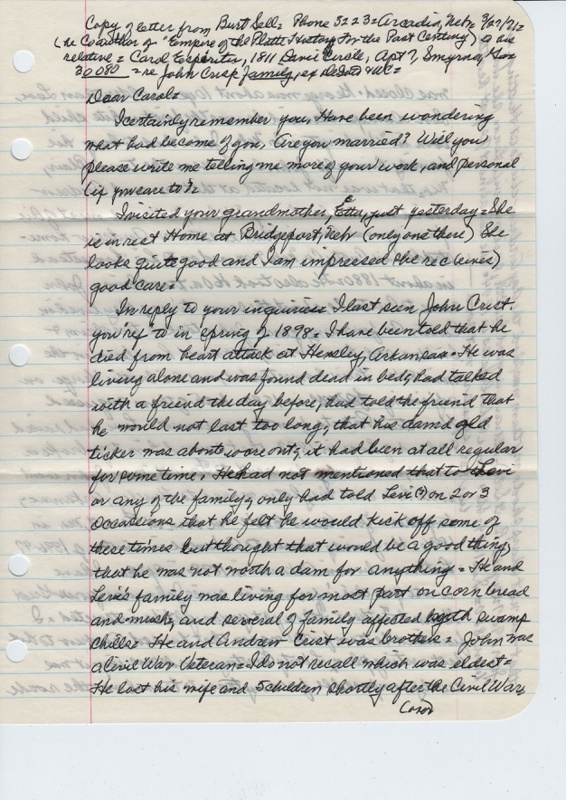 Copy of letter from Burt Sell = Phone 5223 = Arcadia, Nebr 3/27/71 =
(he Coauthor of "Empire of the Platte History For the Past Century) to his
relative = Carol 1811 Davis Circle, Apt 7, Smyrna, Geo
30080 = re John Crist family, ex
Dear Carol =
I certainly remember you, Have been wondering
what had become of you, Are you married? Will you
please write me telling me more of your work, and personal
(if you care to).
I visited your grandmother, Etta, just yesterday = She
is in rest Home at Bridgeport, Nebr (only one there) She
looks quite good and I am impressed she rec (eives)
good care =
In reply to your inquiries I last seen John Crist
you ref to in spring of 1898 = I have been told that he
died from heart attack at Hensley, Arkansas = He was
living alone and was found dead in bed, had talked
with a friend the day before, had told the friend that
he would not last too long, that his damd old
ticker was about wore out, it had been at all regular
for some time, He had not mentioned that to Levi
or any of the family, only had told Levi (?) on 2 or 3
occassions that he felt he would kick off some of
these times but thought that would be a good thing,
that he was not worth a dam for anything = He and
Levi's family was living for most part on corn bread
and mush, and several of family affected with swamp
chills = He and Andrew Crist was brothers = John was
a Civil War Veteran = I do not recall which was eldest =
He lost his wife and 5 children shortly after the Civil War,
(over